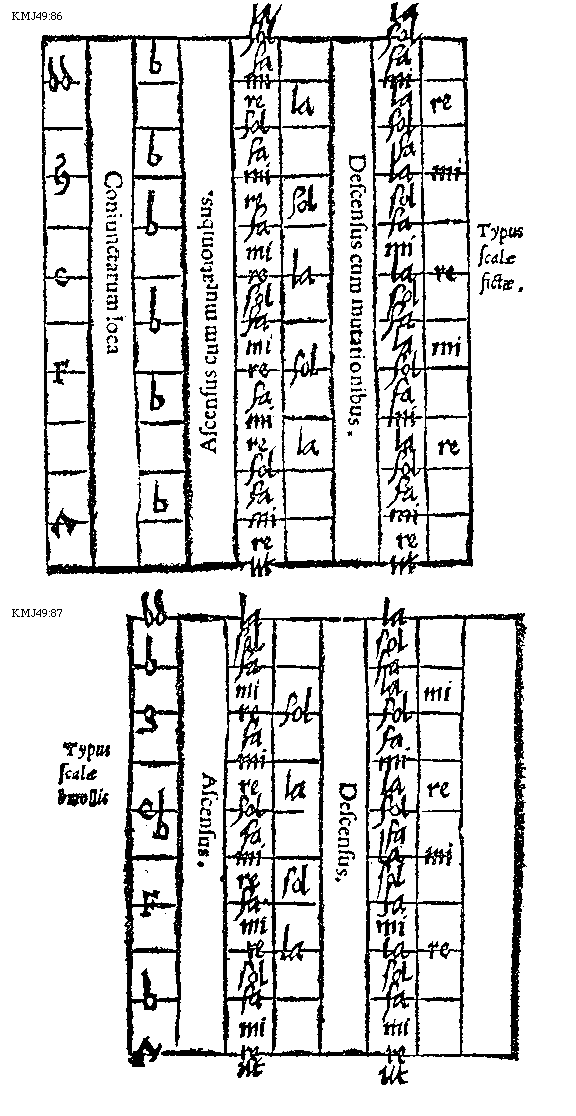 KMJ49:86
dd
g
c
F
Coniunctarum loca
b
b
b
b
b
b
Aſcenſus cum mutationibus.
la
ſol
fa
mi
re
ſol
fa
mi
re
fa
mi
re
ſol
fa
mi
re
fa
mi
re
ſol
fa
mi
re
ut
la
ſol
la
ſol
la
Deſcenſus cum mutationibus.
la
ſol
fa
mi
la
ſol
fa
la
ſol
fa
mi
la
ſol
fa
la
ſol
fa
mi
la
ſol
fa
mi
re
ut
re
mi
re
mi
re
Typus
ſcalæ
fictæ.
KMJ49:87
Typus
ſcalæ
bmollis
dd
b
g
c
b
F
b
Aſcenſus.
la
ſol
fa
mi
re
fa
mi
re
ſol
fa
mi
re
fa
mi
re
ſol
fa
mi
re
ut
ſol
la
ſol
la
Deſcenſus.
la
ſol
fa
la
ſol
fa
mi
la
ſol
fa
la
ſol
fa
mi
la
ſol
fa
mi
re
ut
mi
re
mi
re